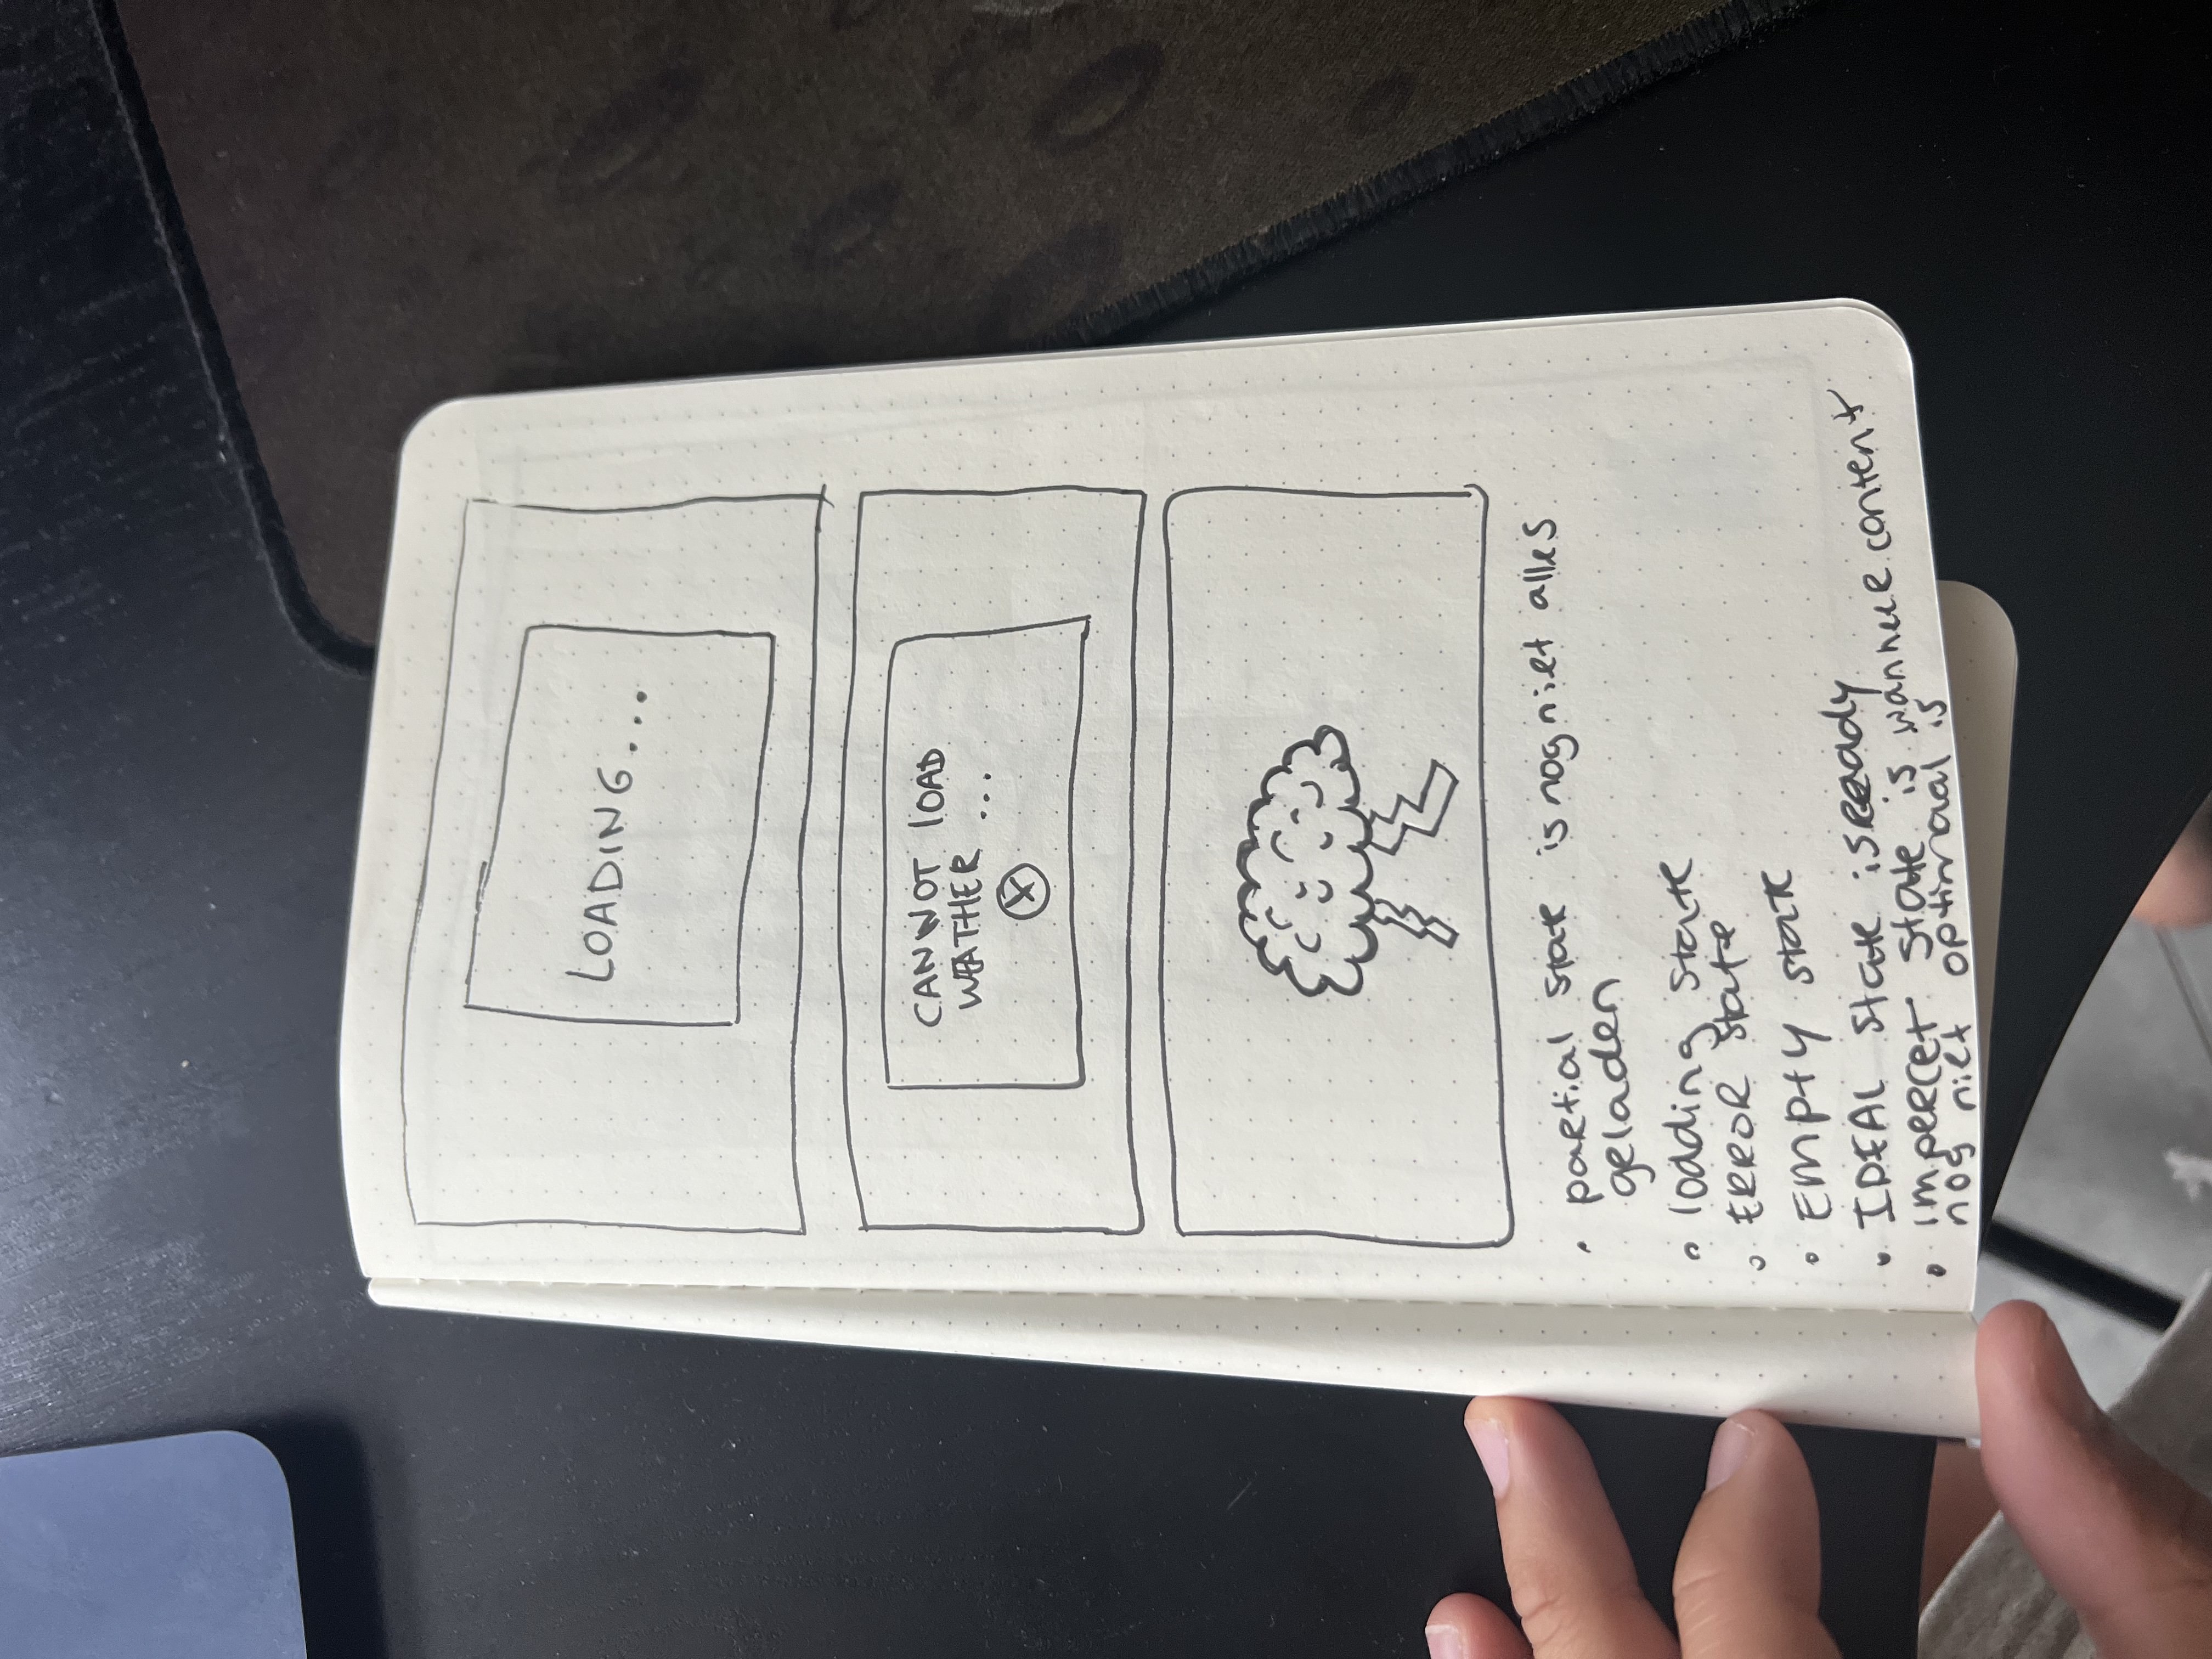 LOADING...
CANNOT LOAD
WEATHER ...
X
• partial state is nog niet alles
geladen
• loading state
• ERROR state
• EMPTY state
• IDEAL state is ready
• impercet state is wanneer content
nog niet optimaal is